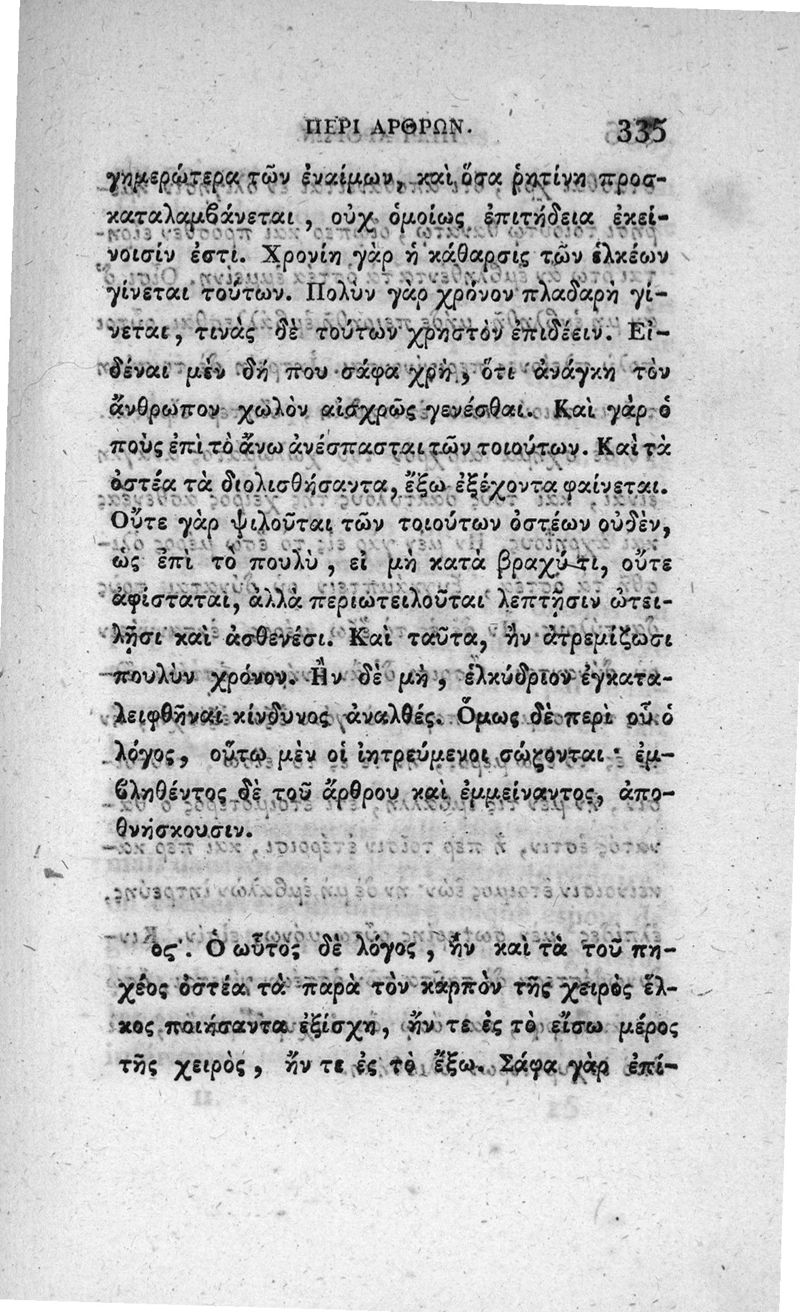 ΠΕΡΙ ΑΡΘΡΩΝ. 335
γημερώτερα τῶν ἐναίμων, καὶ ὅσα ῥητίνη προσ-
καταλαμβάνεται, οὐχ ὁμοίως ἐπιτήδεια ἐκεί-
νοισίν ἐστι. Χρονίη γὰρ ἡ κάθαρσις τῶν ἑλκέων
γίνεται τούτων. Πολὺν γὰρ χρόνον πλαδαρὴ γί-
νεται, τινὰς δὲ τούτων χρηστὸν ἐπιδέειν. Εἰ-
δέναι μὲν δή που σάφα χρὴ, ὅτι ἀνάγκη τὸν
ἄνθρωπον χωλὸν αἰσχρῶς γενέσθαι. Καὶ γὰρ ὁ
ποὺς ἐπὶ τὸ ἄνω ἀνέσπασται τῶν τοιούτων. Καὶ τὰ
ὀστέα τὰ διολισθήσαντα, ἔξω ἐξέχοντα φαίνεται.
Οὔτε γὰρ ψιλοῦται τῶν τοιούτων ὀστέων οὐδὲν,
ὡς ἐπὶ τὸ πουλὺ, εἰ μὴ κατὰ βραχύ τι, οὔτε
ἀφίσταται, ἀλλὰ περιωτειλοῦται λεπτῇσιν ὠτει-
λῇσι καὶ ἀσθενέσι. Καὶ ταῦτα, ἢν ἀτρεμίζωσι
πουλὺν χρόνον. Ἢν δὲ μὴ, ἑλκύδριον ἐγκατα-
λειφθῆναι κίνδυνος ἀναλθές. Ὅμως δὲ περὶ οὗ ὁ
λόγος, οὕτω μὲν οἱ ἰητρεύμενοι σώζονται· ἐμ-
βληθέντος δὲ τοῦ ἄρθρου καὶ ἐμμείναντος, ἀπο-
θνήσκουσιν.
ος΄. Ὁ ωὗτος δὲ λόγος, ἢν καὶ τὰ τοῦ πη-
χέος ὀστέα τὰ παρὰ τὸν καρπὸν τῆς χειρὸς ἕλ-
κος ποιήσαντα ἐξίσχη, ἤν τε ἐς τὸ εἴσω μέρος
τῆς χειρὸς, ἤν τε ἐς τὸ ἔξω. Σάφα γὰρ ἐπί-